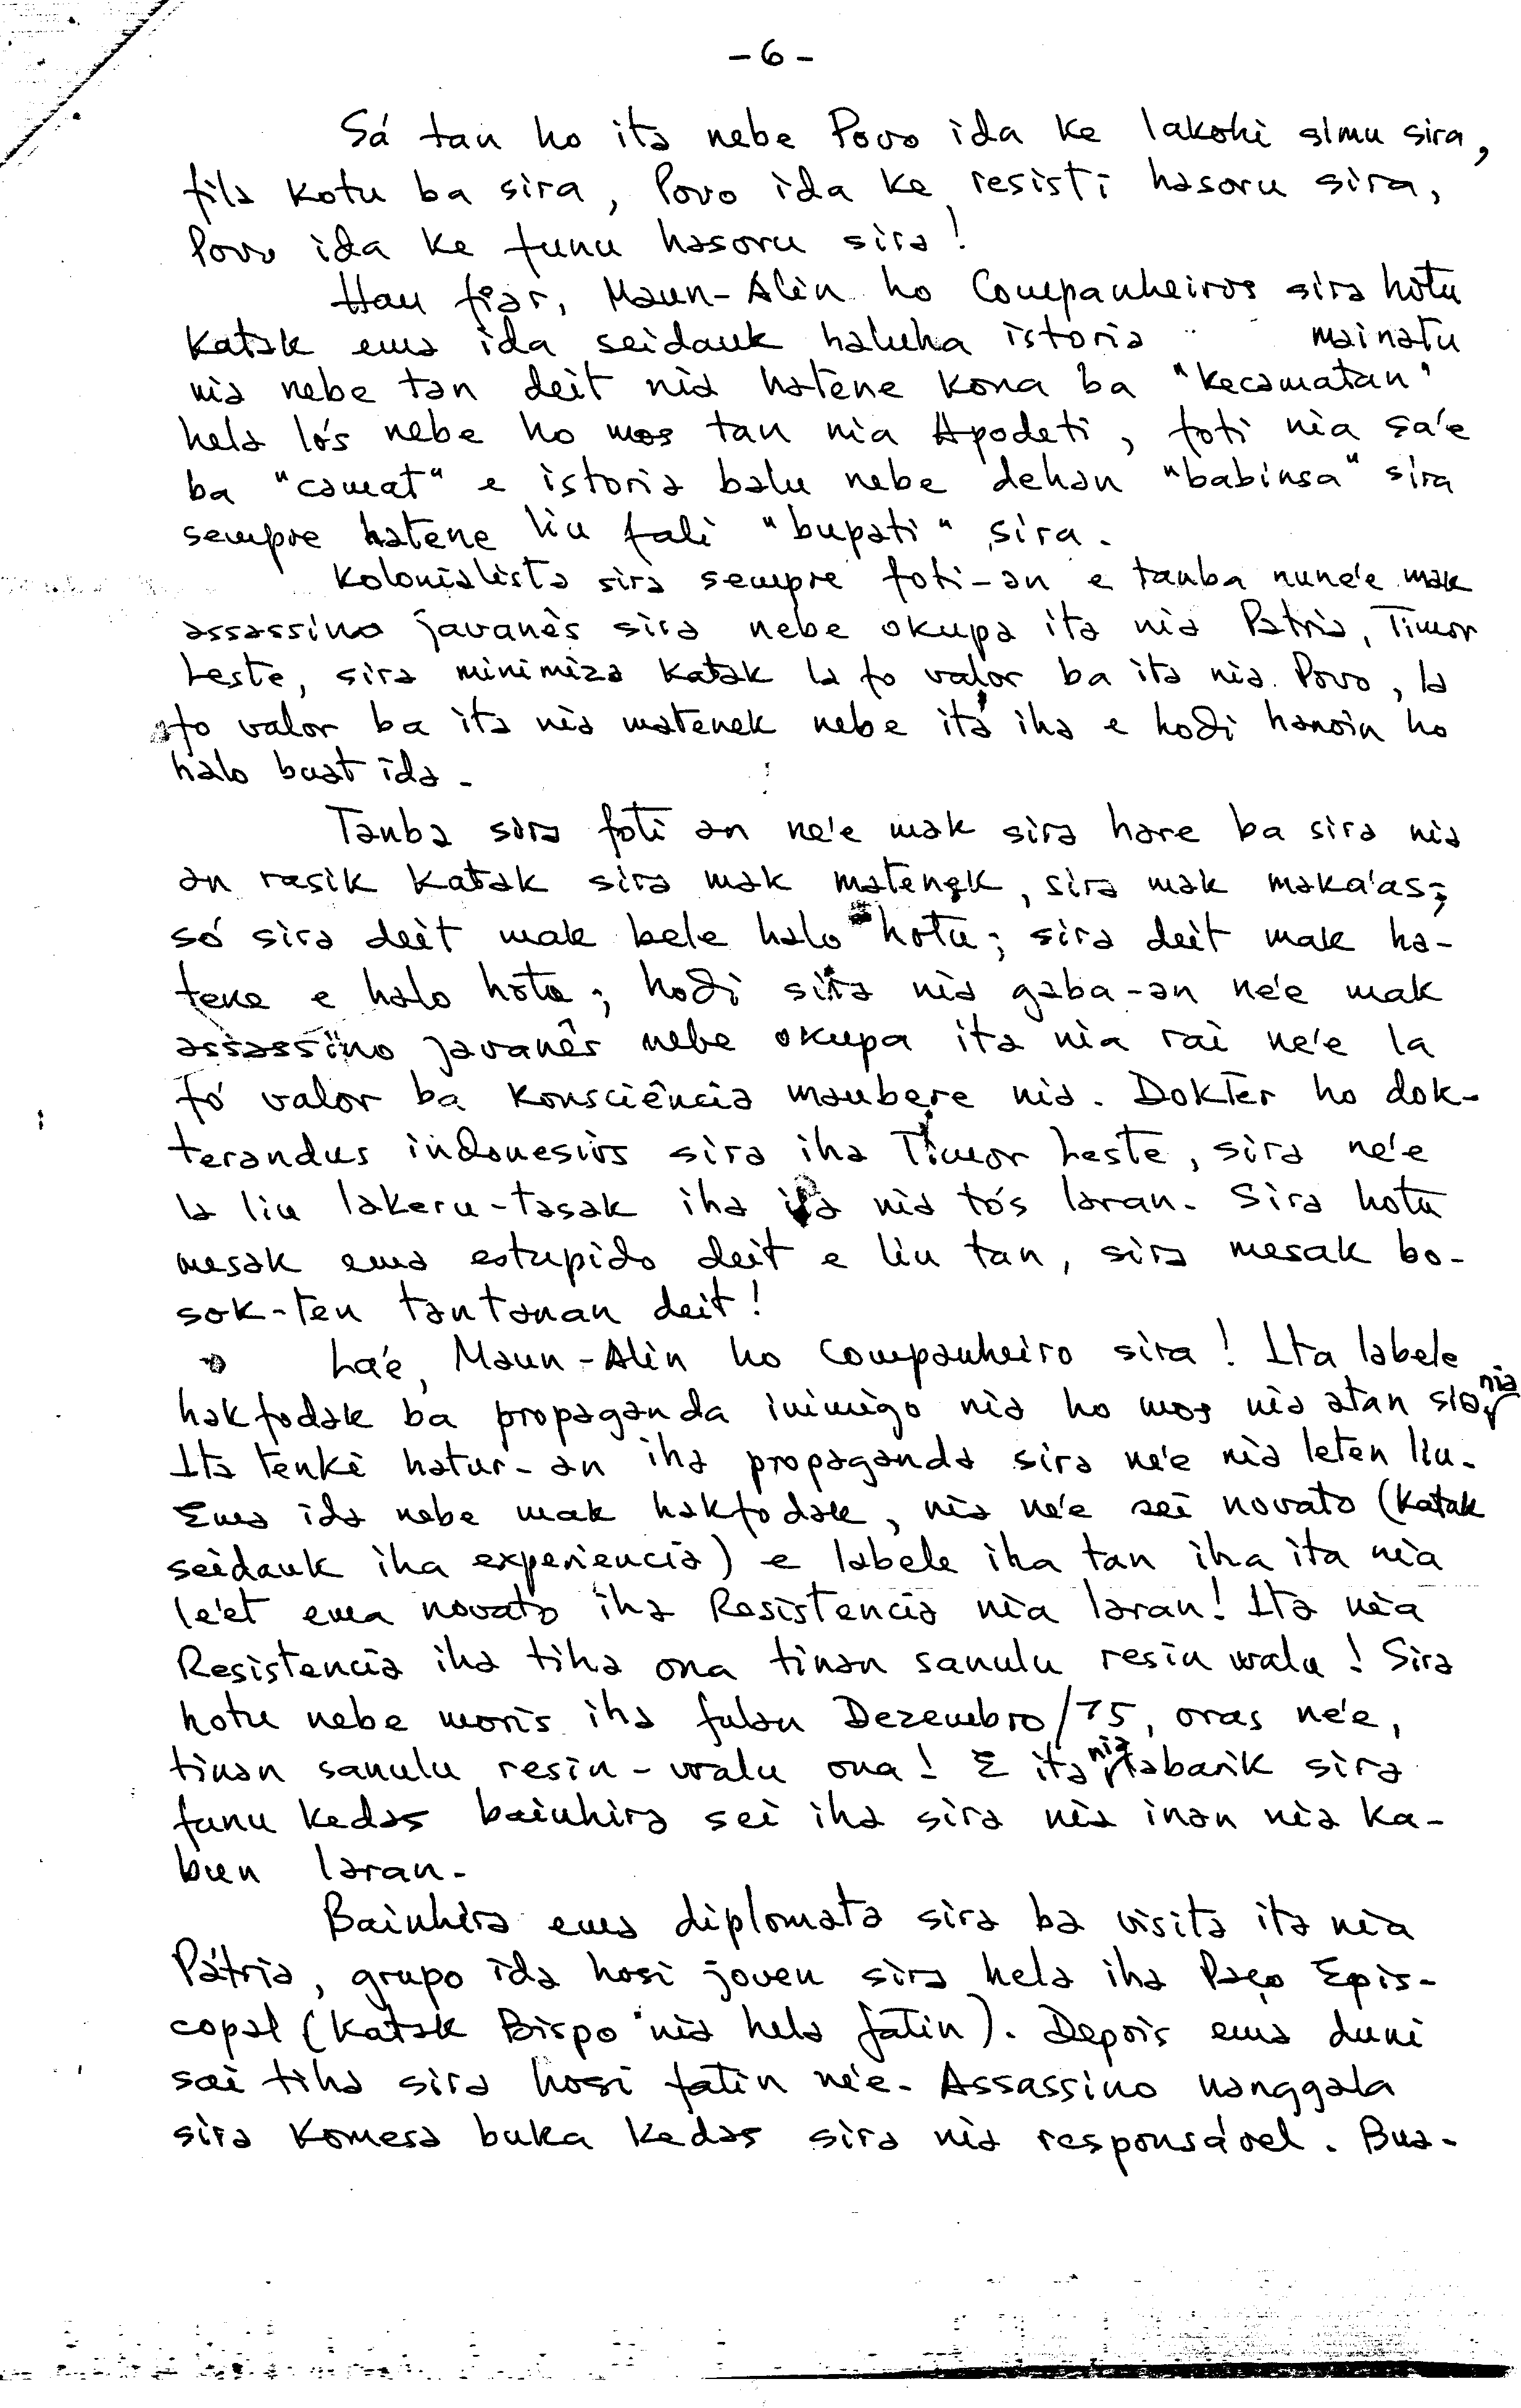 -6-
Sá tan ho ita nebe Povo ida ke lakohi simu sira,
fila kotu ba sira, Povo ida ke resisti hasoru sira,
Povo ida ke funu hasoru sira!
Hau fiar, Maun-Alin ho Companheiros sira hotu
katak ema ida seidauk haluha istoria mainatu
nia nebe tan deit nia hatene kona ba "kecamatan"
hela lo's nebe ho mos tan nia Apodeti, foti nia sa'e
ba "camat" e istoria balu nebe dehan "babinsa" sira
sempre hatene liu fali "bupati" sira.
Kolonialista sira sempre foti-an e tanba nune'e mak
assassino javanês sira nebe okupa ita nia Patria, Timor
Leste, sira minimiza katak la fo valor ba ita nia Povo, la
fo valor ba ita nia matenek nebe ita iha e hodi hanoin ho
halo buat ida.
Tanba sira foti an ne'e mak sira hare ba sira nia
an rasik katak sira mak matenek, sira mak maka'as;
só sira deit mak bele halo hotu; sira deit mak ha-
tene e halo hotu; hodi sira nia gaba-an ne'e mak
assassino javanês nebe okupa ita nia rai ne'e la
fó valor ba konsciência maubere nia. Dokter ho dok-
terandus indonesios sira iha Timor Leste, sira ne'e
la liu lakeru-tasak iha ita nia to's laran. Sira hotu
mesak ema estupido deit e liu tan, sira mesak bo-
sok-ten tantanan deit!
La'e, Maun-Alin ho Companheiro sira! Ita labele
hakfodak ba propaganda inimigo nia ho mos nia atan sira nia
Ita tenki hatur-an iha propaganda sira ne'e nia leten liu.
Ema ida nebe mak hakfodak, nia ne'e sei novato (katak
seidauk iha experiencia) e labele iha tan iha ita nia
le'et ema novato iha Resistencia nia laran! Ita nia
Resistencia iha tiha ona tinan sanulu resin walu! Sira
hotu nebe moris iha fulan Dezembro/75, oras ne'e,
tinan sanulu resin-walu ona! E ita nia labarik sira
funu kedas bainhira sei iha sira nia inan nia ka-
bun laran.
Bainhira ema diplomata sira ba visita ita nia
Pátria, grupo ida hosi joven sira hela iha Paço Epis-
copal (katak Bispo nia hela fatin). Depois ema duni
sai tiha sira hosi fatin ne'e. Assassino nanggala
sira komesa buka kedas sira nia responsável. Bua-